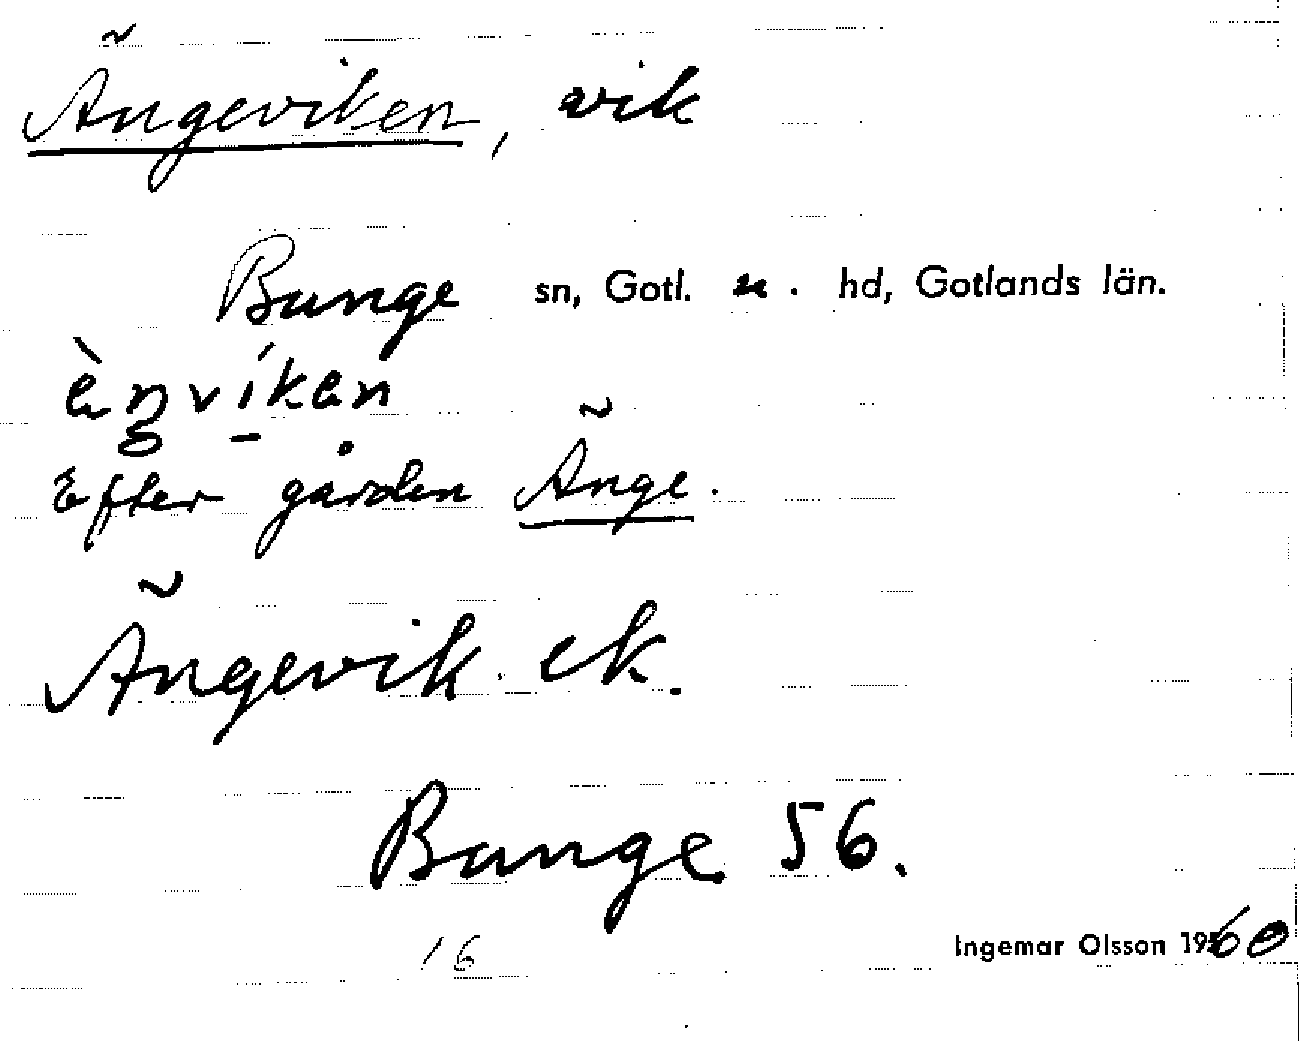 Ängeviken, vik
Bunge sn, Gotl. n. hd, Gotlands län.
èŋvíkən
Efter gården Änge.
Ängevik ek.
Bunge 56.
16
Ingemar Olsson 1960